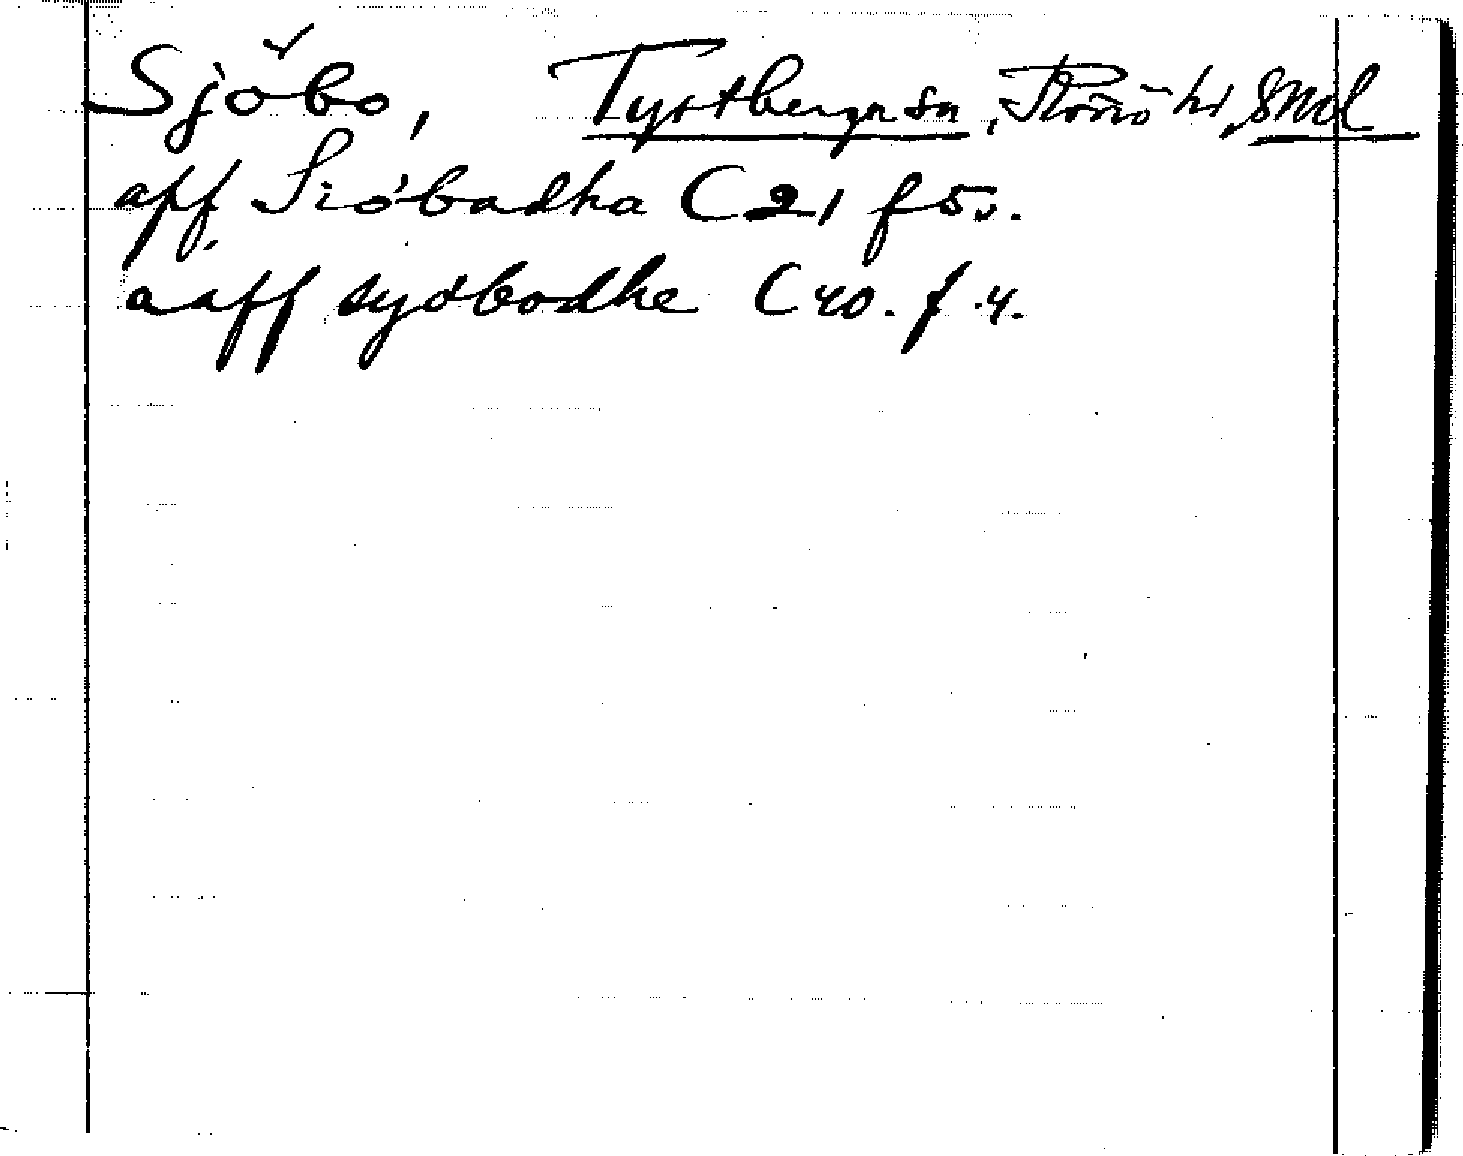 Sjöbo, Tystberga sn, Rönö hd, Smdl
aff Siöbadha C21 f 5v.
a aff syöbodhe C 40. f. 4.